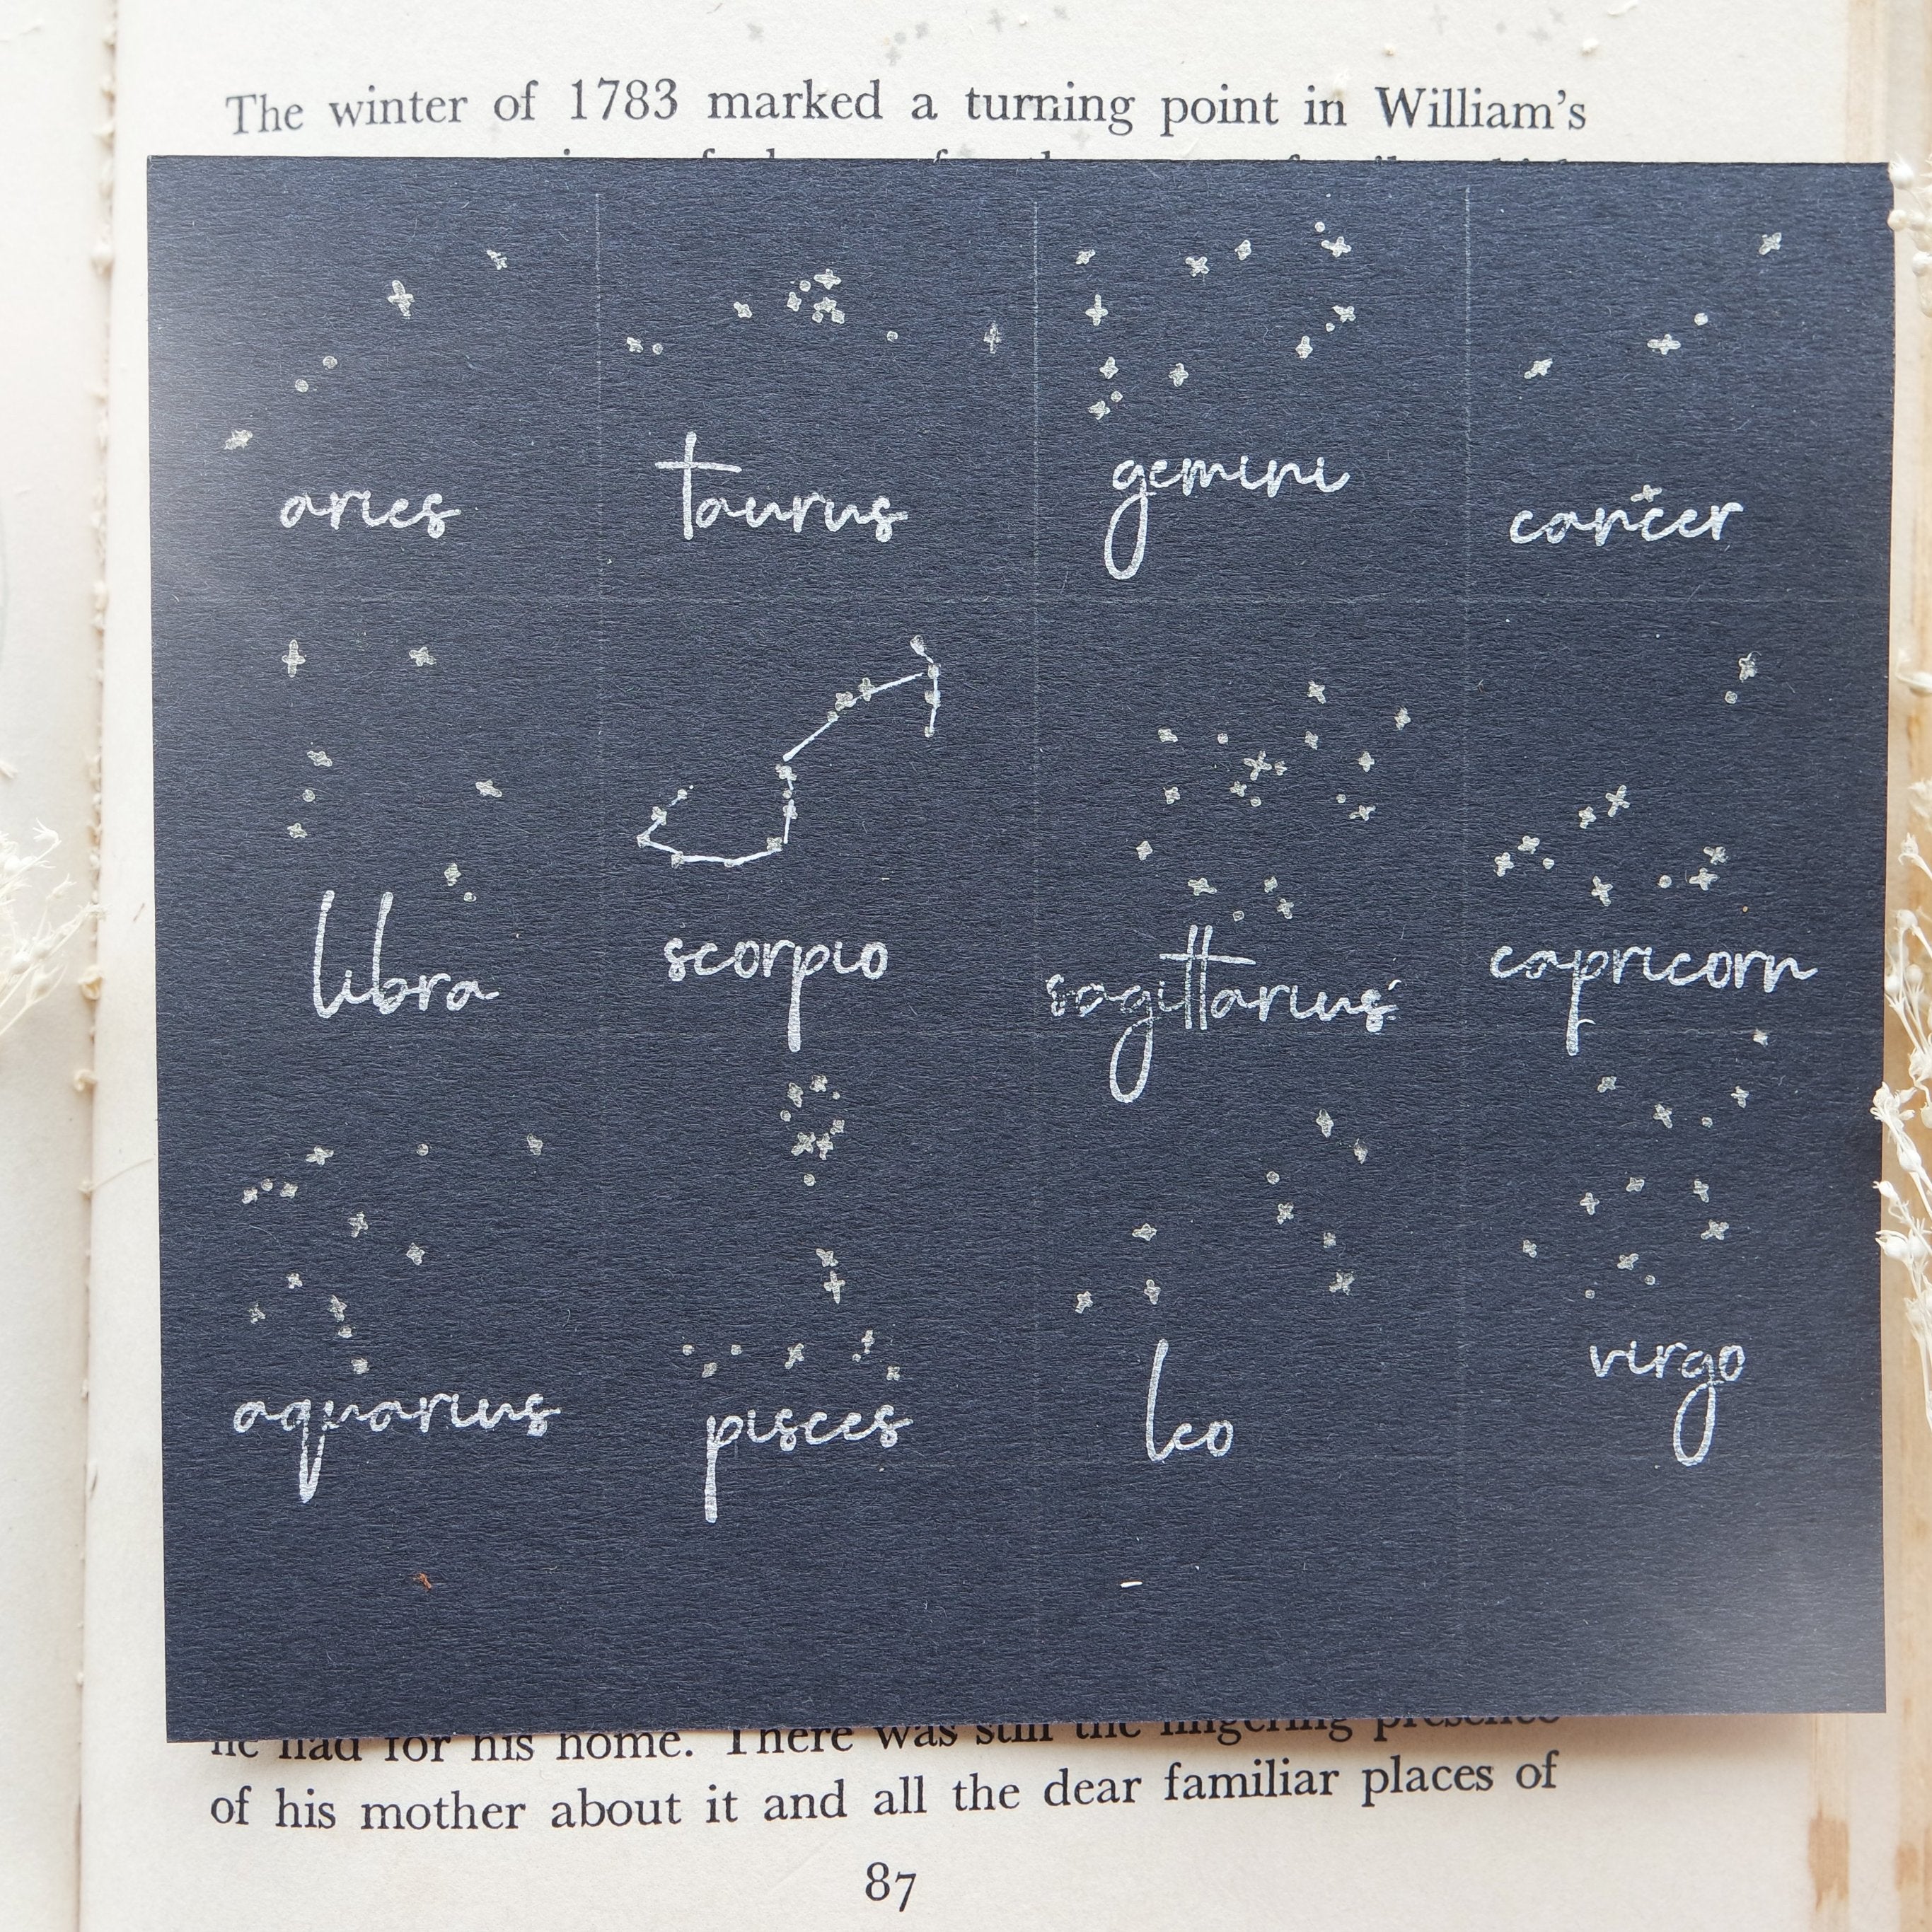 The winter of 1783 marked a turning point in William's
aries taurus gemini cancer
libra scorpio sagittarius capricorn
aquarius pisces leo virgo
he had for his home. There was still the lingering presence
of his mother about it and all the dear familiar places of
87